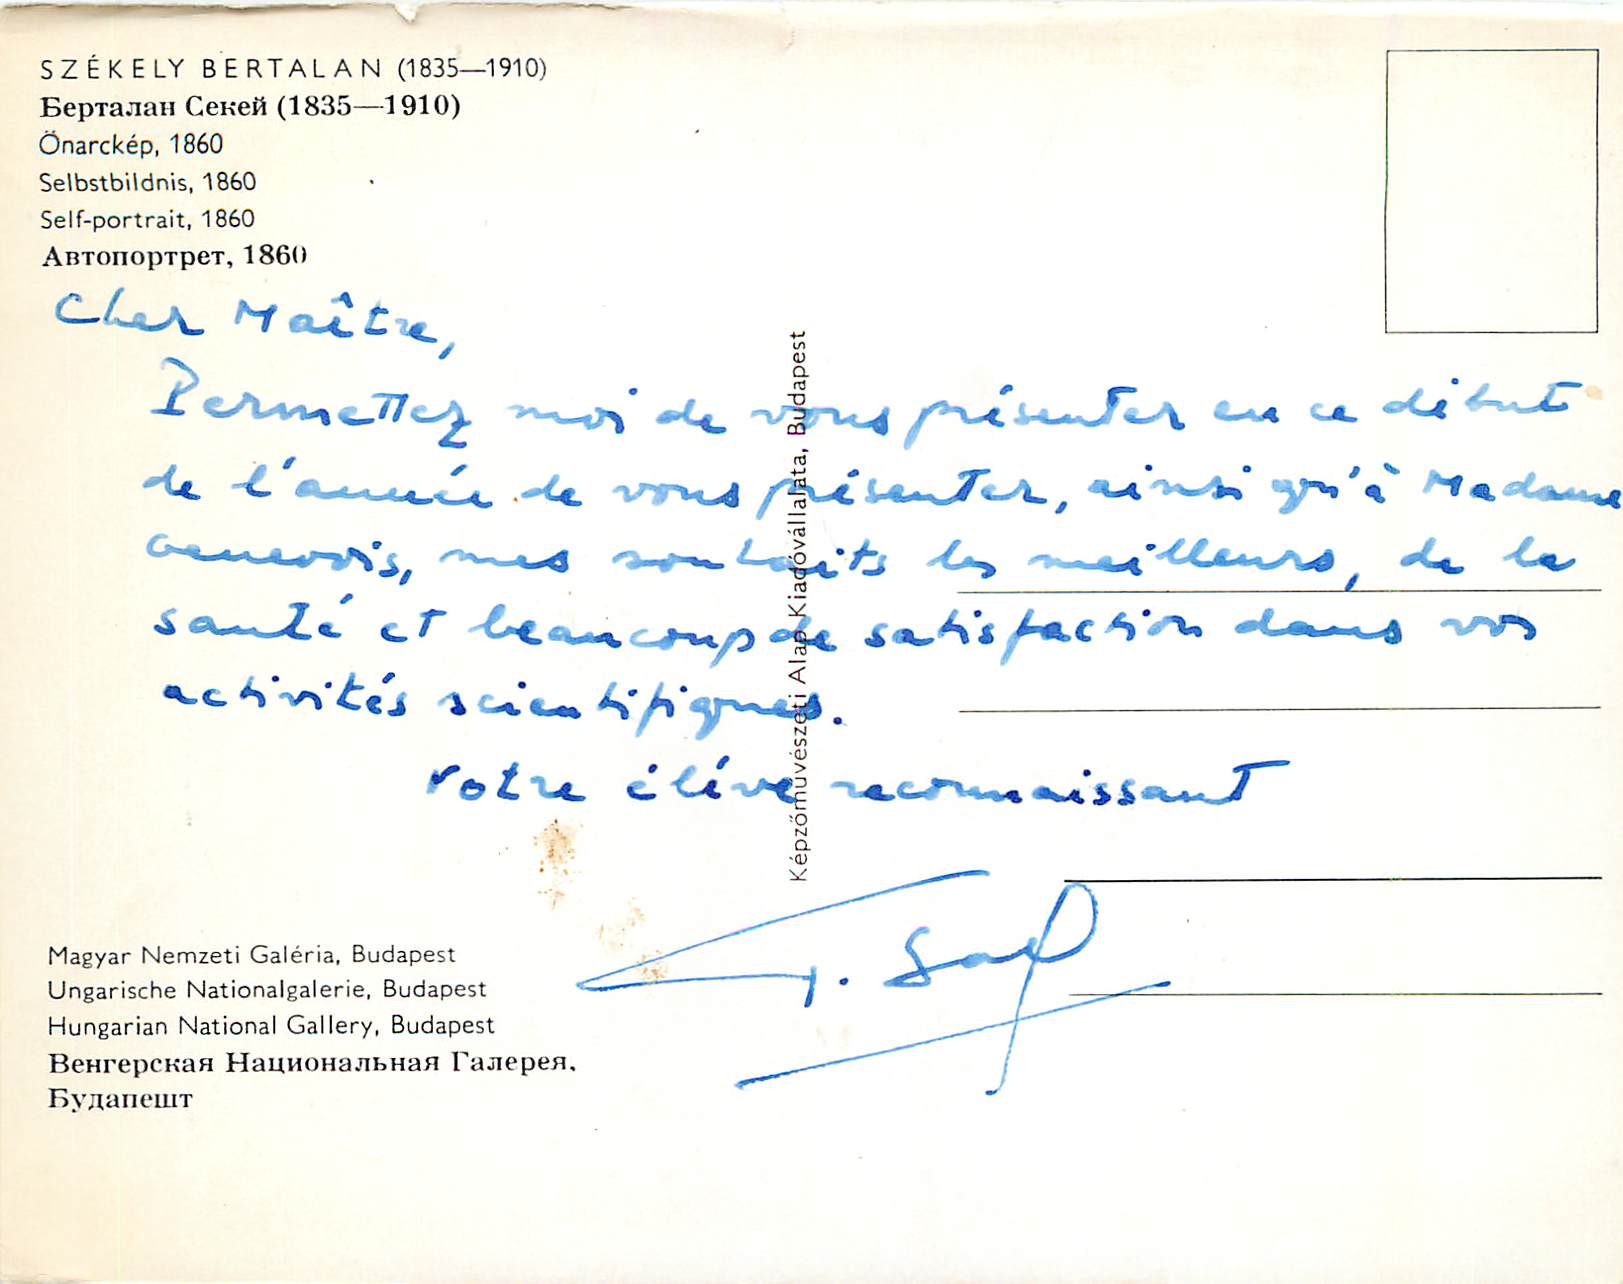 SZÉKELY BERTALAN (1835—1910)
Берталан Секей (1835—1910)
Önarckép, 1860
Selbstbildnis, 1860
Self-portrait, 1860
Автопортрет, 1860
Cher Maître,
Permettez moi de vous présenter en ce début
de l'année de vous présenter, ainsi qu'à Madame
Genevois, mes souhaits les meilleurs, de la
santé et beaucoup de satisfaction dans vos
activités scientifiques.
Votre élève reconnaissant
Képzőművészeti Alap Kiadóvállalata, Budapest
Magyar Nemzeti Galéria, Budapest
Ungarische Nationalgalerie, Budapest
Hungarian National Gallery, Budapest
Венгерская Национальная Галерея,
Будапешт